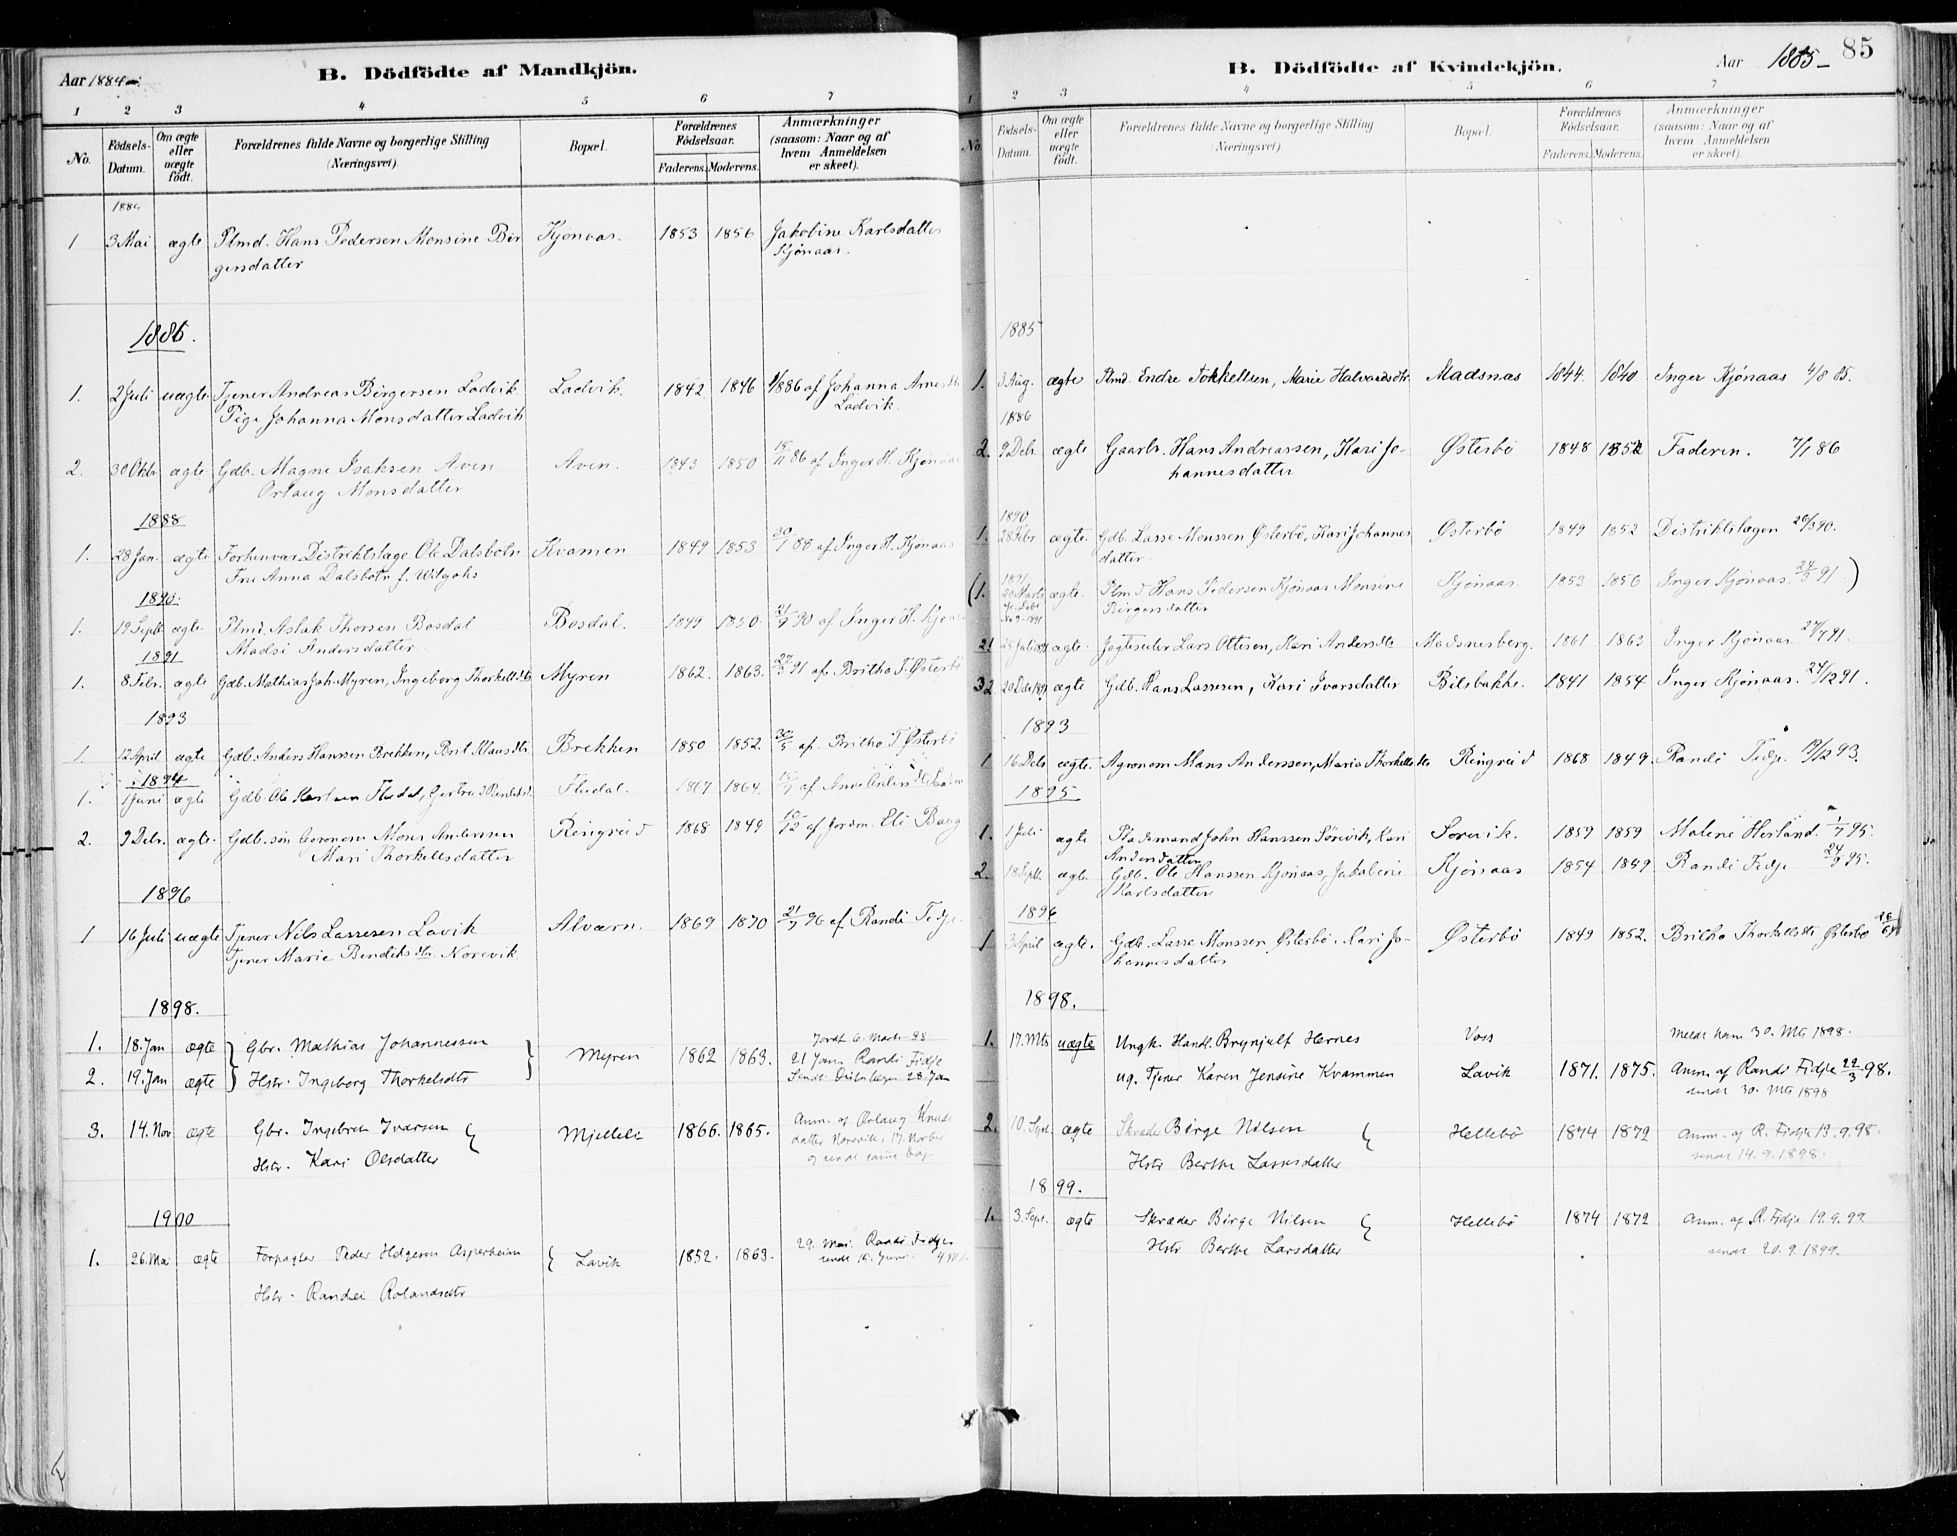 Aar 1884
B. Dödfödte af Mandkjön.
1 2 3 4 5 6 7
No. Födsels-Datum. Om ægte eller uægte født. Forældrenes fulde Navne og borgerlige Stilling (Næringsvei). Bopæl. Forældrenes Födselsaar. Faderens. Moderens. Anmærkninger (saasom: Naar og af hvem Anmeldelsen er skeet).
1884
1 3 Mai ægte Plmd. Hans Pedersen Monsine Bir Kjønaas. 1853 1856 Jakobine Karlsdatter
gersdatter Kjønaas.
1886.
1. 2 Juli uægte Tjener Andreas Børgersen Ladvik Ladvik. 1842 1846 af Johanna
Pige Johanna Monsdatter Ladvik Ladvik.
2. 30 Oktbr ægte Gdb. Magne Isaksen Aven Aven. 1843 1850 18/11 86 af Inger H. Kjønaas
Orlaug Monsdatter
1888
1. 28 Jan. ægte Forhenvær. Distriktslæge Ole Dalsbotn Kvamen 1849 1853 30/1 88 af Inger H. Kjønaas
Fru Anna Dalsbotn f.
1890.
1. 19 Septb ægte. Plmd. Aslak Thorsen Bosdal Bosdal. 1849 1850 21/9 90 af Inger H.
Madsi Andersdatter
1891
1. 8 Febr. ægte Gdb. Mathias Joh. Myren, Ingeborg Thorkelsdtr Myren 1862. 1863. 91 af Britha T. Østerbø
1893
1. 12 April ægte Gdb. Anders Hanssen Brekken, Brit Klausdtr Brekken 1850 1852. 30/5 af Britha T. Østerbø
1894
1. 1 Juni ægte Gdb. Ole Karlsen Fledal, Gertrud Flædal. 1867 1864.
2. 9 Debr. ægte. Gdb. søn Agronom Mons Anderssen Ringreid 1868 1849 12/12 af Jordm. Eli
Mari Thorkellsdatter
1896
1 16 Juli uægte Tjener Nils Lassesen Lavik Alværn. 1869 1870 21/7 96 af Randi Fidje.
Tjener Marie Bendiksdtr. Norevik.
1898.
1. 18. Jan ægte Gbr. Mathias Johannessen Myren 1862 1863. Jordf. 6. Marts 98
2. 19. Jan ægte Hstr. Ingeborg Thorkelsdtr 21 Jan. Randi Fidje
28. Jan
3. 14. Nov ægte Gbr. Ingebret Ivarsen Mjellele 1866. 1865. Anm. af Orlaug Knuds
Hstr. Kari Olsdatter datter Norevik, 17. Novber
og sendt samme Dag
1900
1. 26. Mai ægte Forpagter Peder Helgesen Asperheim Lavik 1852. 1863. 29. Mai. Randi Fidje
Hstr. Randei Rolandsdtr
85
B. Dödfödte af Kvindekjön.
Aar 1885
1 2 3 4 5 6 7
No. Födsels-Datum. Om ægte eller uægte födt. Forældrenes fulde Navne og borgerlige Stilling (Næringsvei). Bopæl. Forældrenes Födselsaar. Faderens. Moderens. Anmærkninger (saasom: Naar og af hvem Anmeldelsen er skeet).
1885
1. 3 Aug. ægte Plmd. Endre Tokkellsen, Marie Halvardsdtr. Madsnas 1844. 1840 Inger Kjønaas 4/8 85.
1886
2. 9 Debr. ægte Gaarbr. Hans Andreassen, Kari Jo- Østerbø 1848 1852 Faderen. 7/1 86
hannesdatter
1890
1. 28 Febr ægte. Gdb. Lasse Monssen Østerbø, Kari Johannes Østerbø 1849 1852 Distriktslægen 20/3 90.
datter.
1891
(1. 20 Marts ægte. Plmd Hans Pedersen Kjønaas Monsine Kjønaas. 1853 1856 Inger Kjønaas 24/3 91.)
Birgersdatter
2 25 Juli 1891 ægte. Jagteseiler Lars Ottesen, Kari Andersdtr Madsnesberg. 1861 1863 Inger Kjønaas 27/7 91.
3 20 Debr 1891 ægte Gdb. Hans Lassesen, Kari Ivarsdatter Bilsbakke. 1841 1854 Inger Kjønaas. 24/12 91.
1893
1 16 Debr ægte. Agronom Mons Anderssen, Maria Thorkellsdtr Ringreid 1868 1849. Randi Fidje. 19/12 93.
1895
1. 1 Juli ægte Pladsmand John Hanssen Sørevik, Kari Sørevik. 1859 1859 Malene Herland. 1/7 95.
Andersdatter
2. 18 Septb. ægte. Gdb. Ole Hanssen Kjønaas, Jakobine Kjønaas 1854 1849 Randi Fidje 24/9 95.
Karlsdatter
1896
1. 3 April ægte. Gdb. Lasse Monssen Østerbø. Kari Jo- Østerbø 1849 1852. Britha Thorkellsdtr Østerbø
hannesdatter
1898.
1. 17. Mts uægte Ungk. Handl. Brynjulf Hernes Voss Meldt ham 30. Mts 1898.
ug. Tjener Karen Jensine Kvammen Lavik 1871. 1875. Anm. af Randi Fidtje 22/3 98.
sendt 30. Mts 1898
2. 10. Sept. ægte Skræder Børge Nilsen Hellebø 1874 1872 Anm. af R. Fidtje 13.9.98.
Hstr Berthe Larsdatter sendt 14.9.1898.
1899.
1. 3. Sept. ægte Skræder Børge Nilsen Hellebø 1874 1872 Anm. af R. Fidtje 19.9.99
Hstr Berthe Larsdatter sendt 20.9.1899.